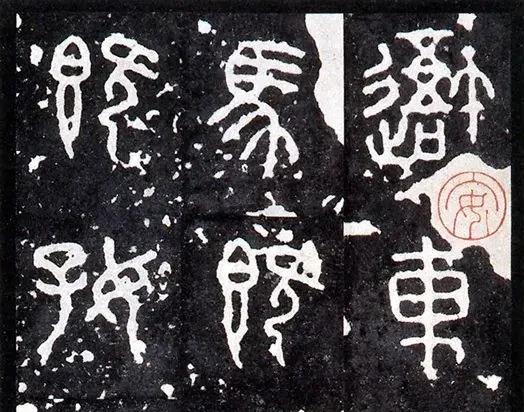 䢒車
馬既
既好